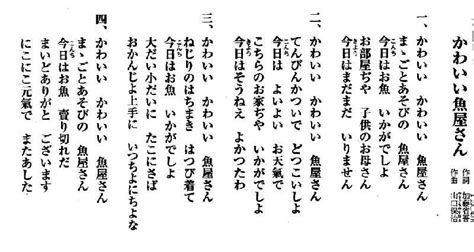 かわいい魚屋さん
作詞 加藤省吾
作曲 山口保治
一、かわいい かわいい 魚屋さん
まゝごとあそびの 魚屋さん
今日はお魚 いかがでしよ
お部屋ぢや 子供のお母さん
今日はまだまだ いりません
二、かわいい かわいい 魚屋さん
てんびんかついで どつこいしよ
今日は よいよい お天氣で
こちらのお家ぢや いかがでしよ
今日はそうねえ よかつたわ
三、かわいい かわいい 魚屋さん
ねじりのはちまき はつぴ着て
今日はお魚 いかがでしよ
大だい小だいに たこにさば
おかんじよ上手に いつちよにちよな
四、かわいい かわいい 魚屋さん
まゝごとあそびの 魚屋さん
今日はお魚 賣り切れだ
まいどありがと ございます
にこにこ元氣で またあした